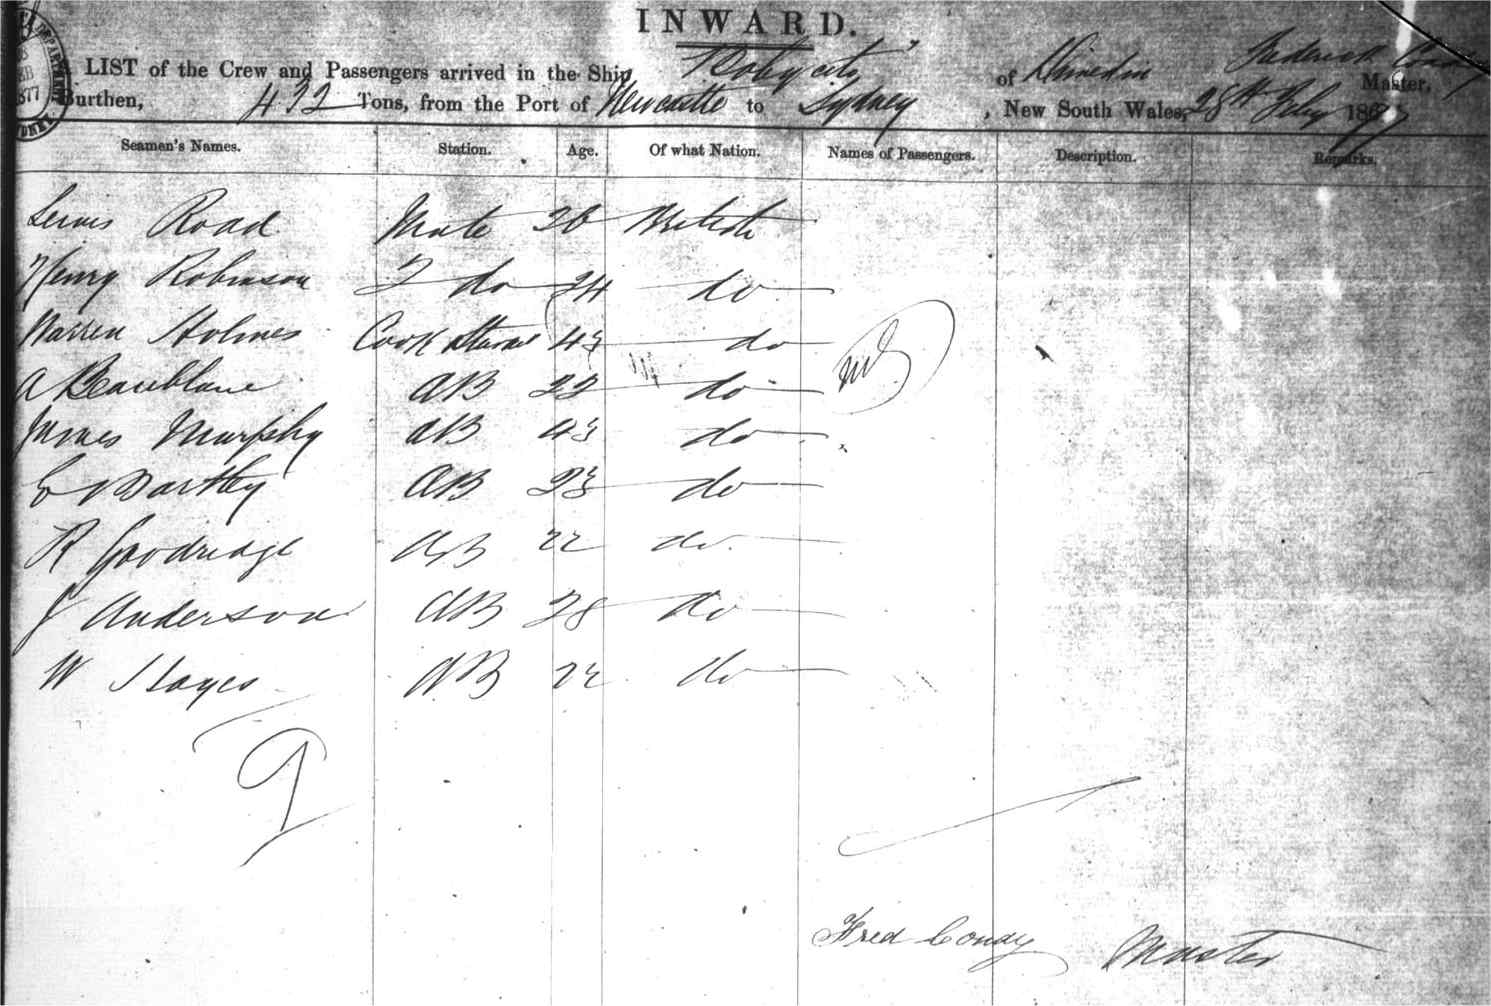 INWARD.
LIST of the Crew and Passengers arrived in the Ship of Dunedin Frederick Master,
Burthen, 432 Tons, from the Port of Newcastle to Sydney, New South Wales, 28th Feby 1877
Seamen's Names. Station. Age. Of what Nation. Names of Passengers. Description. Remarks.
Lewis Road Mate 26 British
Henry Robinson 2 do 24 do
Warren Holmes Cook & Steward 43 do
A AB 22 do nil
James Murphy AB 43 do
E Bartley AB 23 do
R Goodridge AB 22 do.
J Anderson AB 28 do
W Hayes AB 22 do
9
Fred Condy Master